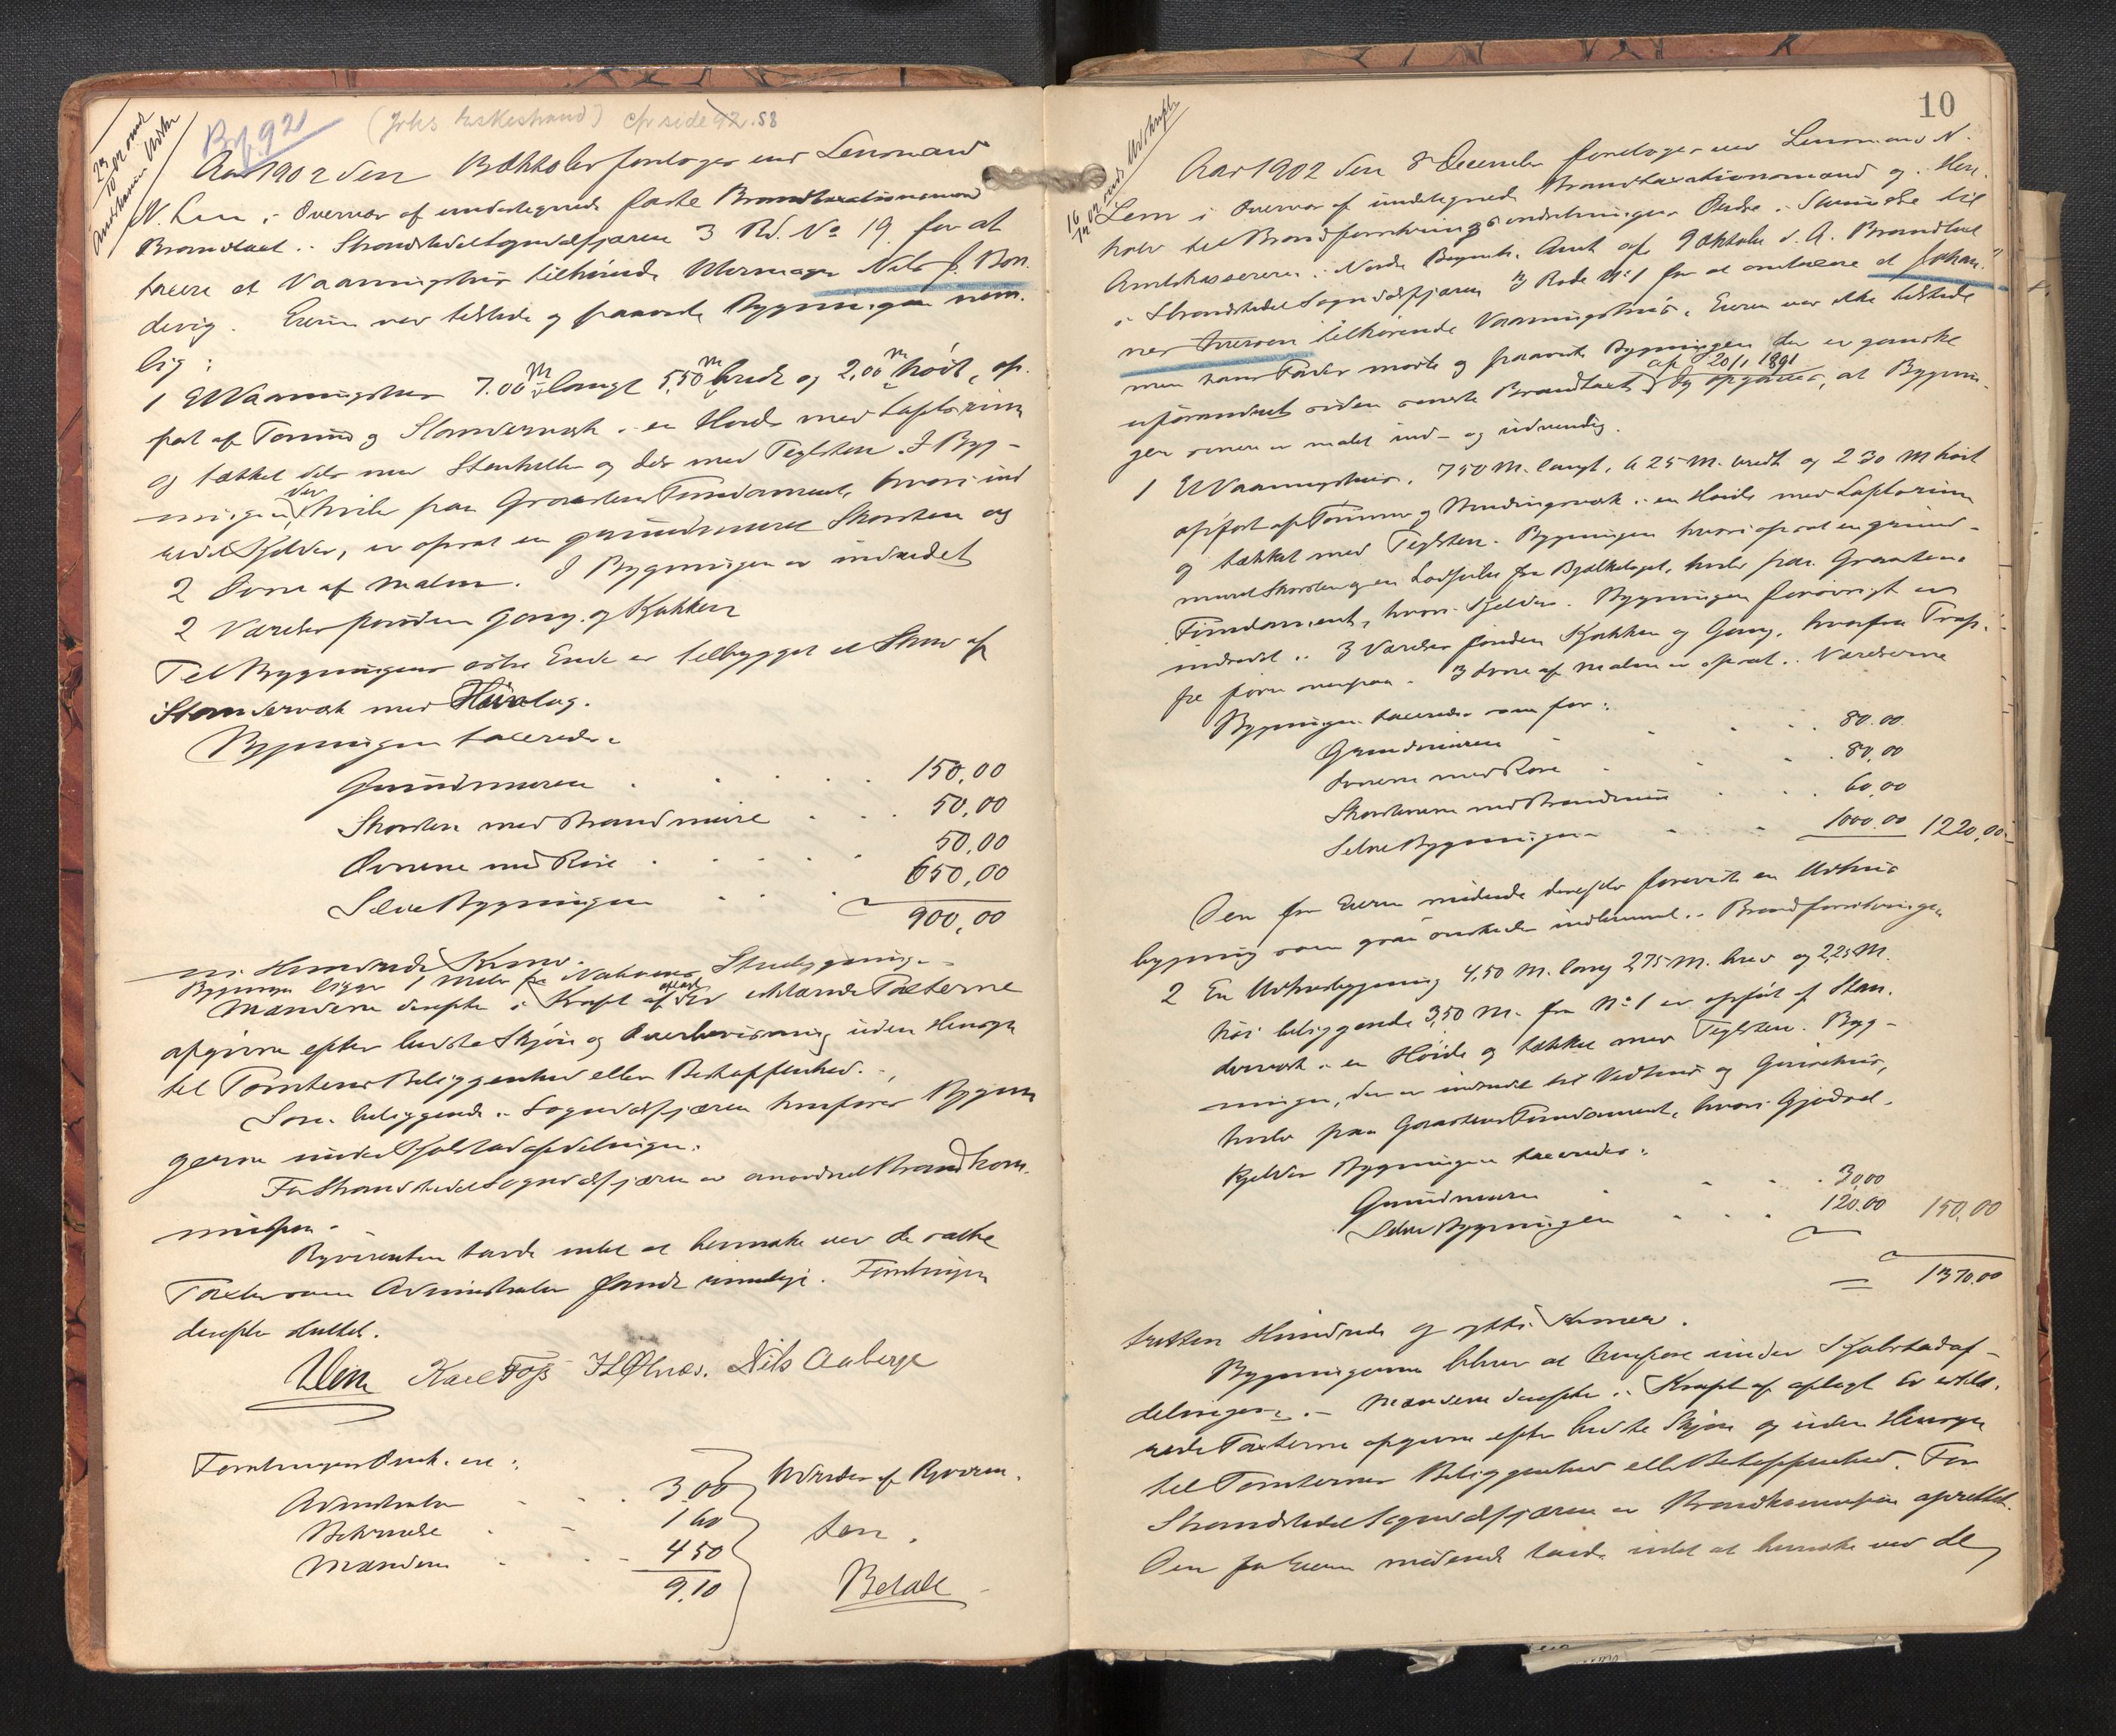 23/10 02
Amtskassen
Bf. 921
(Johs Eskestrand) cfr side 92.58
Aar 1902 den 8 Oktober foretoges ved Lensmand
N. Lem i Overvær af undertegnede faste Brandtaxationsmænd
Brandtaxt i Strandstedet Sogndalsfjæren 3 Rd. No 19 for at
taxere et Vaaningshus tilhørende Uhrmager Nils J. Bon-
devig. Eieren var tilstede og paaviste Bygningen nem-
lig:
1 Et Vaaningshus 7.00 M langt 5,50 M bredt og 2,00 M høit, op-
ført af Tømmer og Standerværk i en Høide med Loftsrum
og tækket dels med Stenheller og dels med Teglsten. I Byg-
ningen, der hviler paa Graastens Fundament, hvori ind
redet Kjelder, er opsat en grundmuret Skorsten og
2 Ovne af Malm. I Bygningen er indredet
2 Værelser foruden Gang og Kjøkken
Til Bygningens østre Ende er tilbygget et Skur af
Standerværk med Halvtag.
Bygningen taxeredes
Grundmuren . . . . . 150,00
Skorsten med Brandmure . . . 50,00
Ovnene med Rør . . . . . 50,00
Selve Bygningen . . . 650,00
900,00
ni Hundrede Kroner.
Bygningen ligger 1 Meter fra Naboens Stuebygning.
Mændene derefter i Kraft af aflagt Ed erklærede Taxterne
afgivne efter bedste Skjøn og Overbevisning uden Hensyn
til Tomternes Beliggenhed eller Beskaffenhed.
Som beliggende i Sogndalsfjæren henføres Bygnin
gerne under Kjøbstadafdelingen.
For Strandstedet Sogndalsfjæren er anordnet Brandkom-
mission.
Rekvirenten havde intet at bemærke ved de satte
Taxter som Administrator fandt rimelige. Forretningen
derefter sluttet.
NLem Karl Foss H Ølnæs. Nils Aaberge
Forretningens Omk. ere:
Administrator . . . 3.00
Skrivere . . . 1 60
Mændene . . . 4 50
9.10
Udredes af Rekviren-
ten.
Betalt
10
16/12 02 Udskrift
Aar 1902 den 8 December foretoges ved Lensmand N.
Lem i Overvær af undertegnede Brandtaxationsmænd og i Hen-
hold til Brandforsikringsindretningens Ordre i Skrivelse til
Amtskassereren i Nordre Bergenh. Amt af 9 Oktober d. A. Brandtaxt
i Strandstedet Sogndalsfjæren 3 Rode No 1 for at omtaxere et Johan-
nes Iversen tilhørende Vaaningshus. Eieren var ikke tilstede
men hans Fader mødte og paaviste Bygningen der er ganske
uforandret siden seneste Brandtaxt af 20/1 1891 Og opgaves, at Bygnin-
gen senere er malet ind- og udvendig.
1 Et Vaaningshus, 7 50 M. langt, 6 25 M. bredt og 2 30 M høit
opført af Tømmer og Bindingsværk i en Høide med Loftsrum
og tækket med Teglsten. Bygningen hvori opsat en grund-
muret Skorsten og en Ladpibe fra Bjelkelaget, hviler paa Graastens
Fundament, hvori Kjelder. Bygningen forøvrigt er
indredet i 3 Værelser foruden Kjøkken og Gang, hvorfra Trap-
pe fører ovenpaa. 3 Ovne af Malm er opsat i Værelserne
Bygningen taxeredes som før:
Grundmuren . . . . 80.00
Ovnene med Rør . . . 80,00
Skorstenene med Brandmur . . . 60,00
Selve Bygningen . . . 1000.00 1220,00
Den for Eieren mødende derefter foreviste en Udhus
bygning som ogsaa ønskedes indlemmet i Brandforsikringen.
2 En Udhusbygning 4,50 M. lang 2,75 M. bred og 2,25 M.
høi beliggende 3,50 M. fra No 1 er opført af Stan-
derværk i en Høide og tækket med Teglsten. Byg-
ningen, der er indredet til Vedhus og Grisehus,
hviler paa Graastens Fundament, hvori Gjødsel-
kjelder Bygningen taxeredes:
Grundmuren . . . 30,00
Selve Bygningen . . . 120.00 150,00
1370.00
tretten Hundrede og sytti Kroner.
Bygningerne bliver at henføre under Kjøbstadaf-
delingen. Mændene derefter i Kraft af aflagt Ed erklæ-
rede Taxterne afgivne efter bedste Skjøn og uden Hensyn
til Tomternes Beliggenhed eller Beskaffenhed. For
Strandstedet Sogndalsfjæren er Brandkommission oprettet.
Den for Eieren mødende havde intet at bemærke ved de